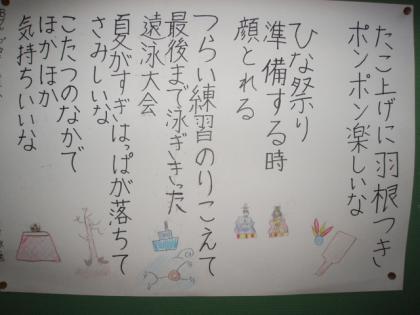 たこ上げに羽根つき
ポンポン楽しいな
ひな祭り
準備する時
顔とれる
つらい練習のりこえて
最後まで泳ぎきった
遠泳大会
夏がすぎはっぱが落ちて
さみしいな
こたつのなかで
ほかほか
気持ちいいな